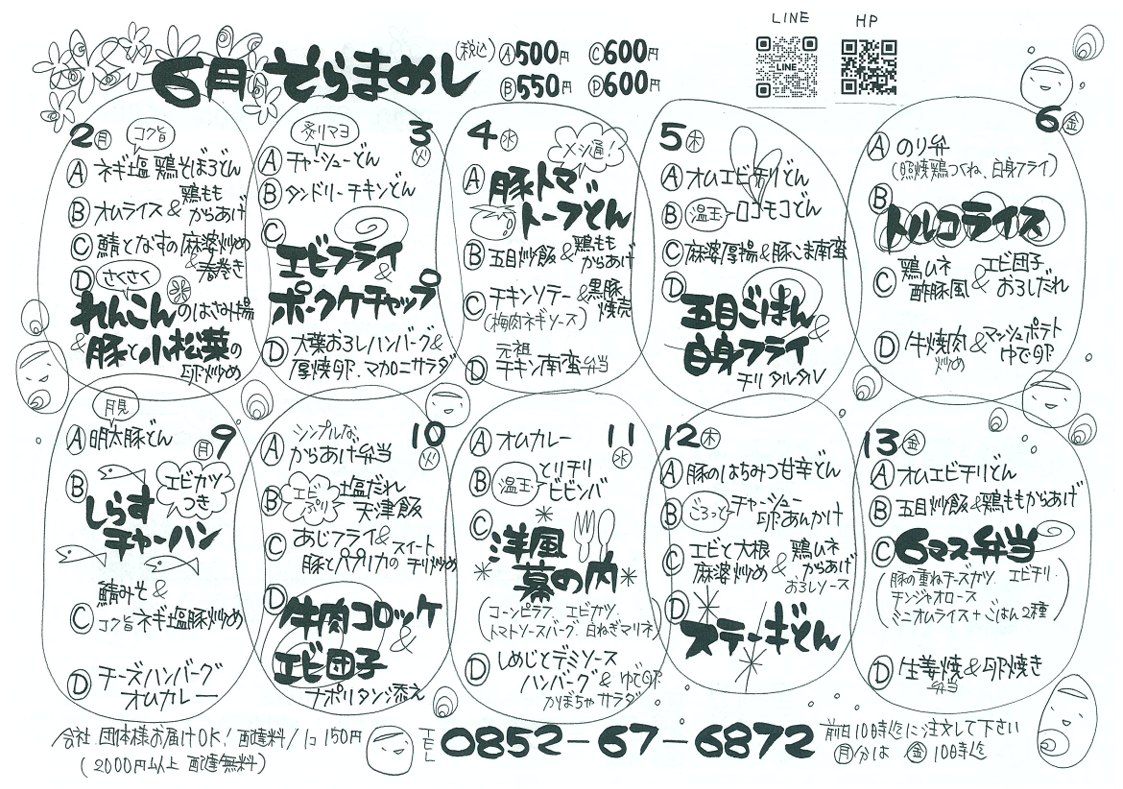 LINE HP
6月 そらまめし
(税込) Ⓐ500円 Ⓒ600円
Ⓑ550円 Ⓓ600円
LINE
2㊊
コク旨
Ⓐ ネギ塩 鶏そぼろどん
Ⓑ オムライス & 鶏もも
からあげ
Ⓒ 鯖となすの麻婆炒め
& 春巻き
Ⓓ さくさく
れんこんのはさみ揚
& 豚と小松菜の
卵炒め
3㊋
炙りマヨ
Ⓐ チャーシューどん
Ⓑ タンドリーチキンどん
Ⓒ
エビフライ
&
ポークケチャップ
Ⓓ 大葉おろしハンバーグ&
厚焼卵.マカロニサラダ
4㊌
メシ通!
Ⓐ 豚トマ
トーフどん
Ⓑ 五目炒飯 & 鶏もも
からあげ
Ⓒ チキンソテー & 黒豚
焼売
(梅肉ネギソース)
Ⓓ 元祖
チキン南蛮弁当
5㊍
Ⓐ オムエビチリどん
Ⓑ 温玉 ロコモコどん
Ⓒ 麻婆厚揚&豚こま南蛮
Ⓓ
五目ごはん
&
白身フライ
チリタルタル
6㊎
Ⓐ のり弁
(照焼鶏つくね、白身フライ)
Ⓑ
トルコライス
Ⓒ 鶏ムネ
酢豚風 & エビ団子
おろしだれ
Ⓓ 牛焼肉
炒め & マッシュポテト
ゆで卵
9㊊
月見
Ⓐ 明太豚どん
Ⓑ エビカツ
つき
しらす
チャーハン
鯖みそ &
Ⓒ コク旨ネギ塩豚炒め
Ⓓ チーズハンバーグ
オムカレー
10㊋
Ⓐ シンプルな
からあげ弁当
Ⓑ エビ
ぷり 塩だれ
天津飯
Ⓒ あじフライ&
豚とパプリカの スイート
チリ炒め
Ⓓ
牛肉コロッケ
&
エビ団子
ナポリタン添え
11㊌
Ⓐ オムカレー
Ⓑ 温玉 とりチリ
ビビンバ
Ⓒ
洋風
幕の内
(コーンピラフ、エビカツ、
トマトソースバーグ、白ねぎマリネ)
Ⓓ しめじとデミソース
ハンバーグ & ゆで卵
かぼちゃサラダ
12㊍
Ⓐ 豚のはちみつ甘辛どん
Ⓑ ごろっと チャーシュー
卵あんかけ
Ⓒ エビと大根
麻婆炒め & 鶏ムネ
からあげ
おろしソース
Ⓓ
ステーキどん
13㊎
Ⓐ オムエビチリどん
Ⓑ 五目炒飯&鶏ももからあげ
Ⓒ 6マス弁当
(豚の重ねチーズカツ、エビチリ
チンジャオロース
ミニオムライス+ごはん2種)
Ⓓ 生姜焼 & 卵焼き
弁当
会社、団体様お届けOK! 配達料/1コ 150円
(2000円以上 配達無料)
TEL 0852-67-6872
前日10時迄にご注文して下さい
㊊分は ㊎10時迄